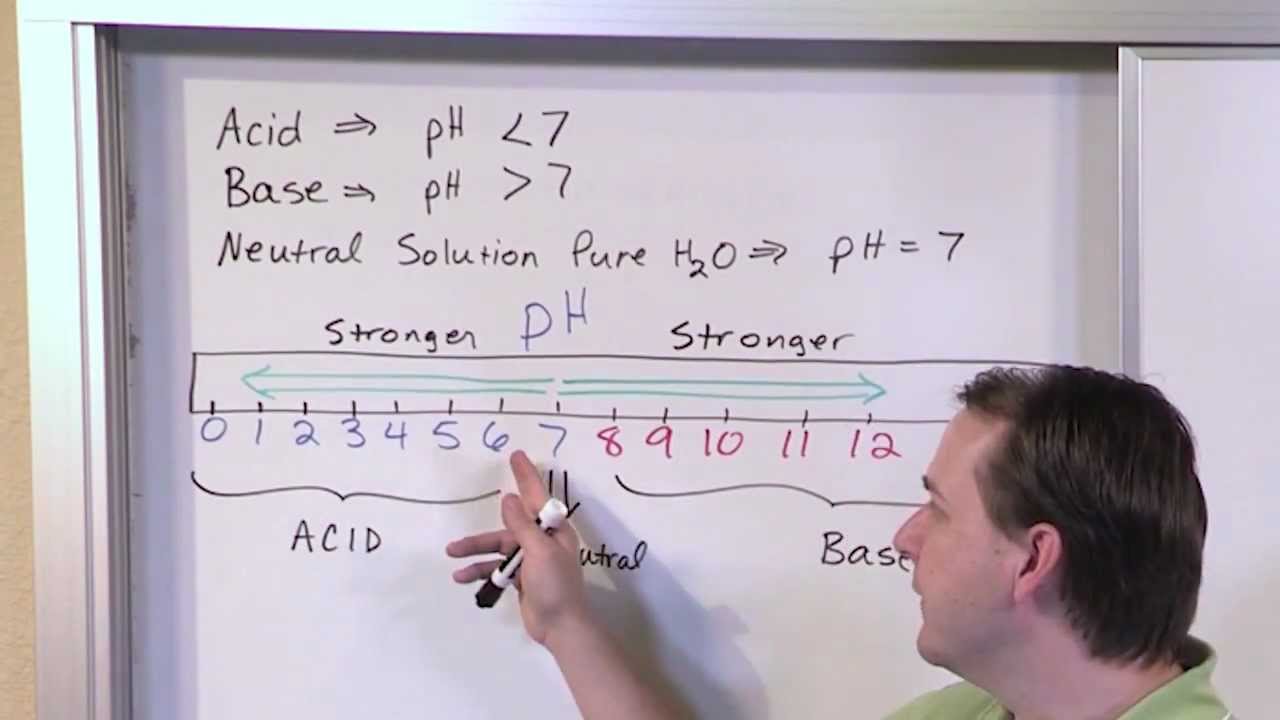 Acid ⇒ pH < 7
Base ⇒ pH > 7
Neutral Solution Pure H₂O ⇒ pH = 7
Stronger pH Stronger
0 1 2 3 4 5 6 7 8 9 10 11 12
ACID utral Base